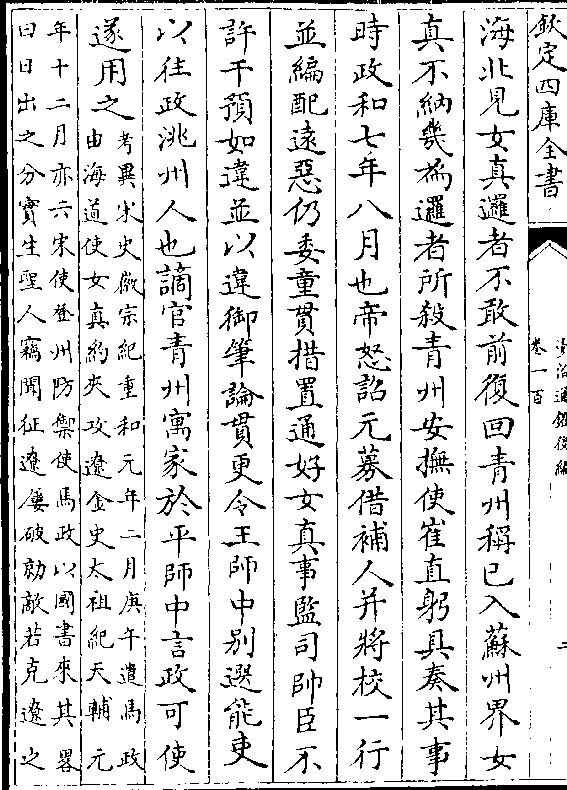 欽定四庫全書
資治通鑑後編
卷一百
二
海北見女真邏者不敢前復回青州稱已入蘇州界女
真不納幾為邏者所殺青州安撫使崔直躬具奏其事
時政和七年八月也帝怒詔元募借補人并將校一行
並編配遠惡仍委童貫措置通好女真事監司帥臣不
許干預如違並以違御筆論貫更令王師中別選能吏
以往政洮州人也謫官青州寓家於平師中言政可使
遂用之
考異宋史徽宗紀重和元年二月庚午遣馬政
由海道使女真約夾攻遼金史太祖紀天輔元
年十二月亦六宋使登州防禦使馬政以國書來其畧
曰日出之分實生聖人竊聞征遼屢破勍敵若克遼之